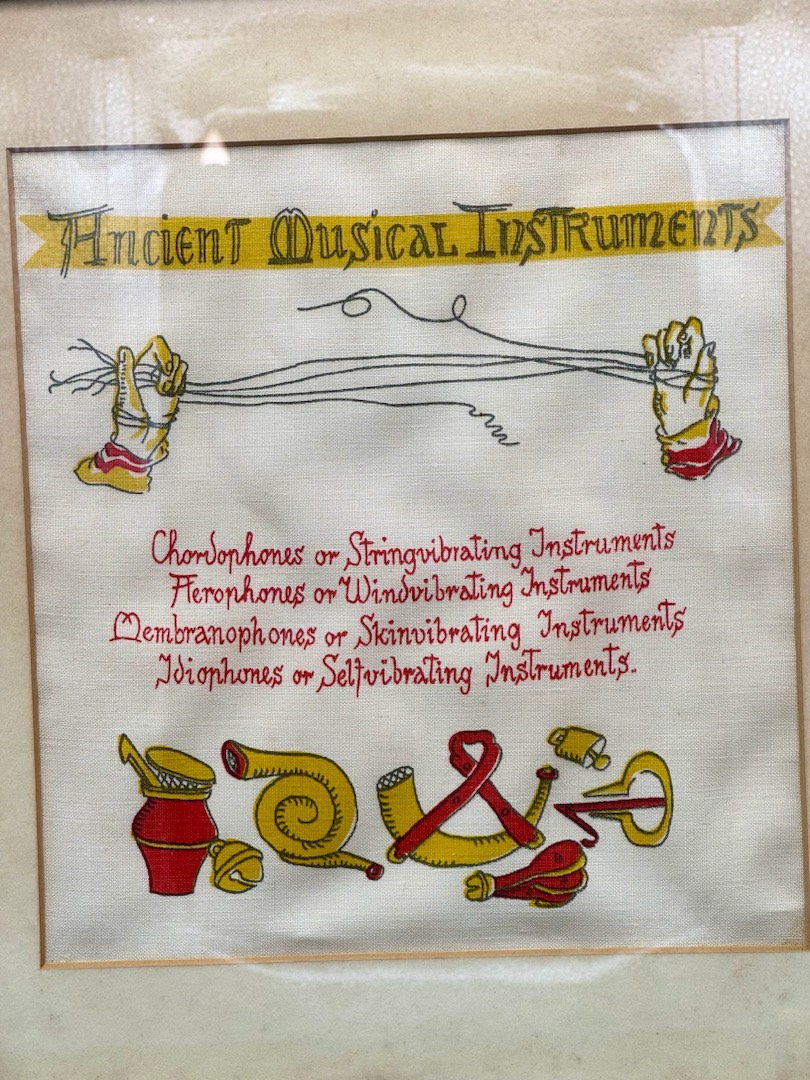 Ancient Musical Instruments
Chordophones or Stringvibrating Instruments
Aerophones or Windvibrating Instruments
Membranophones or Skinvibrating Instruments
Idiophones or Selfvibrating Instruments..